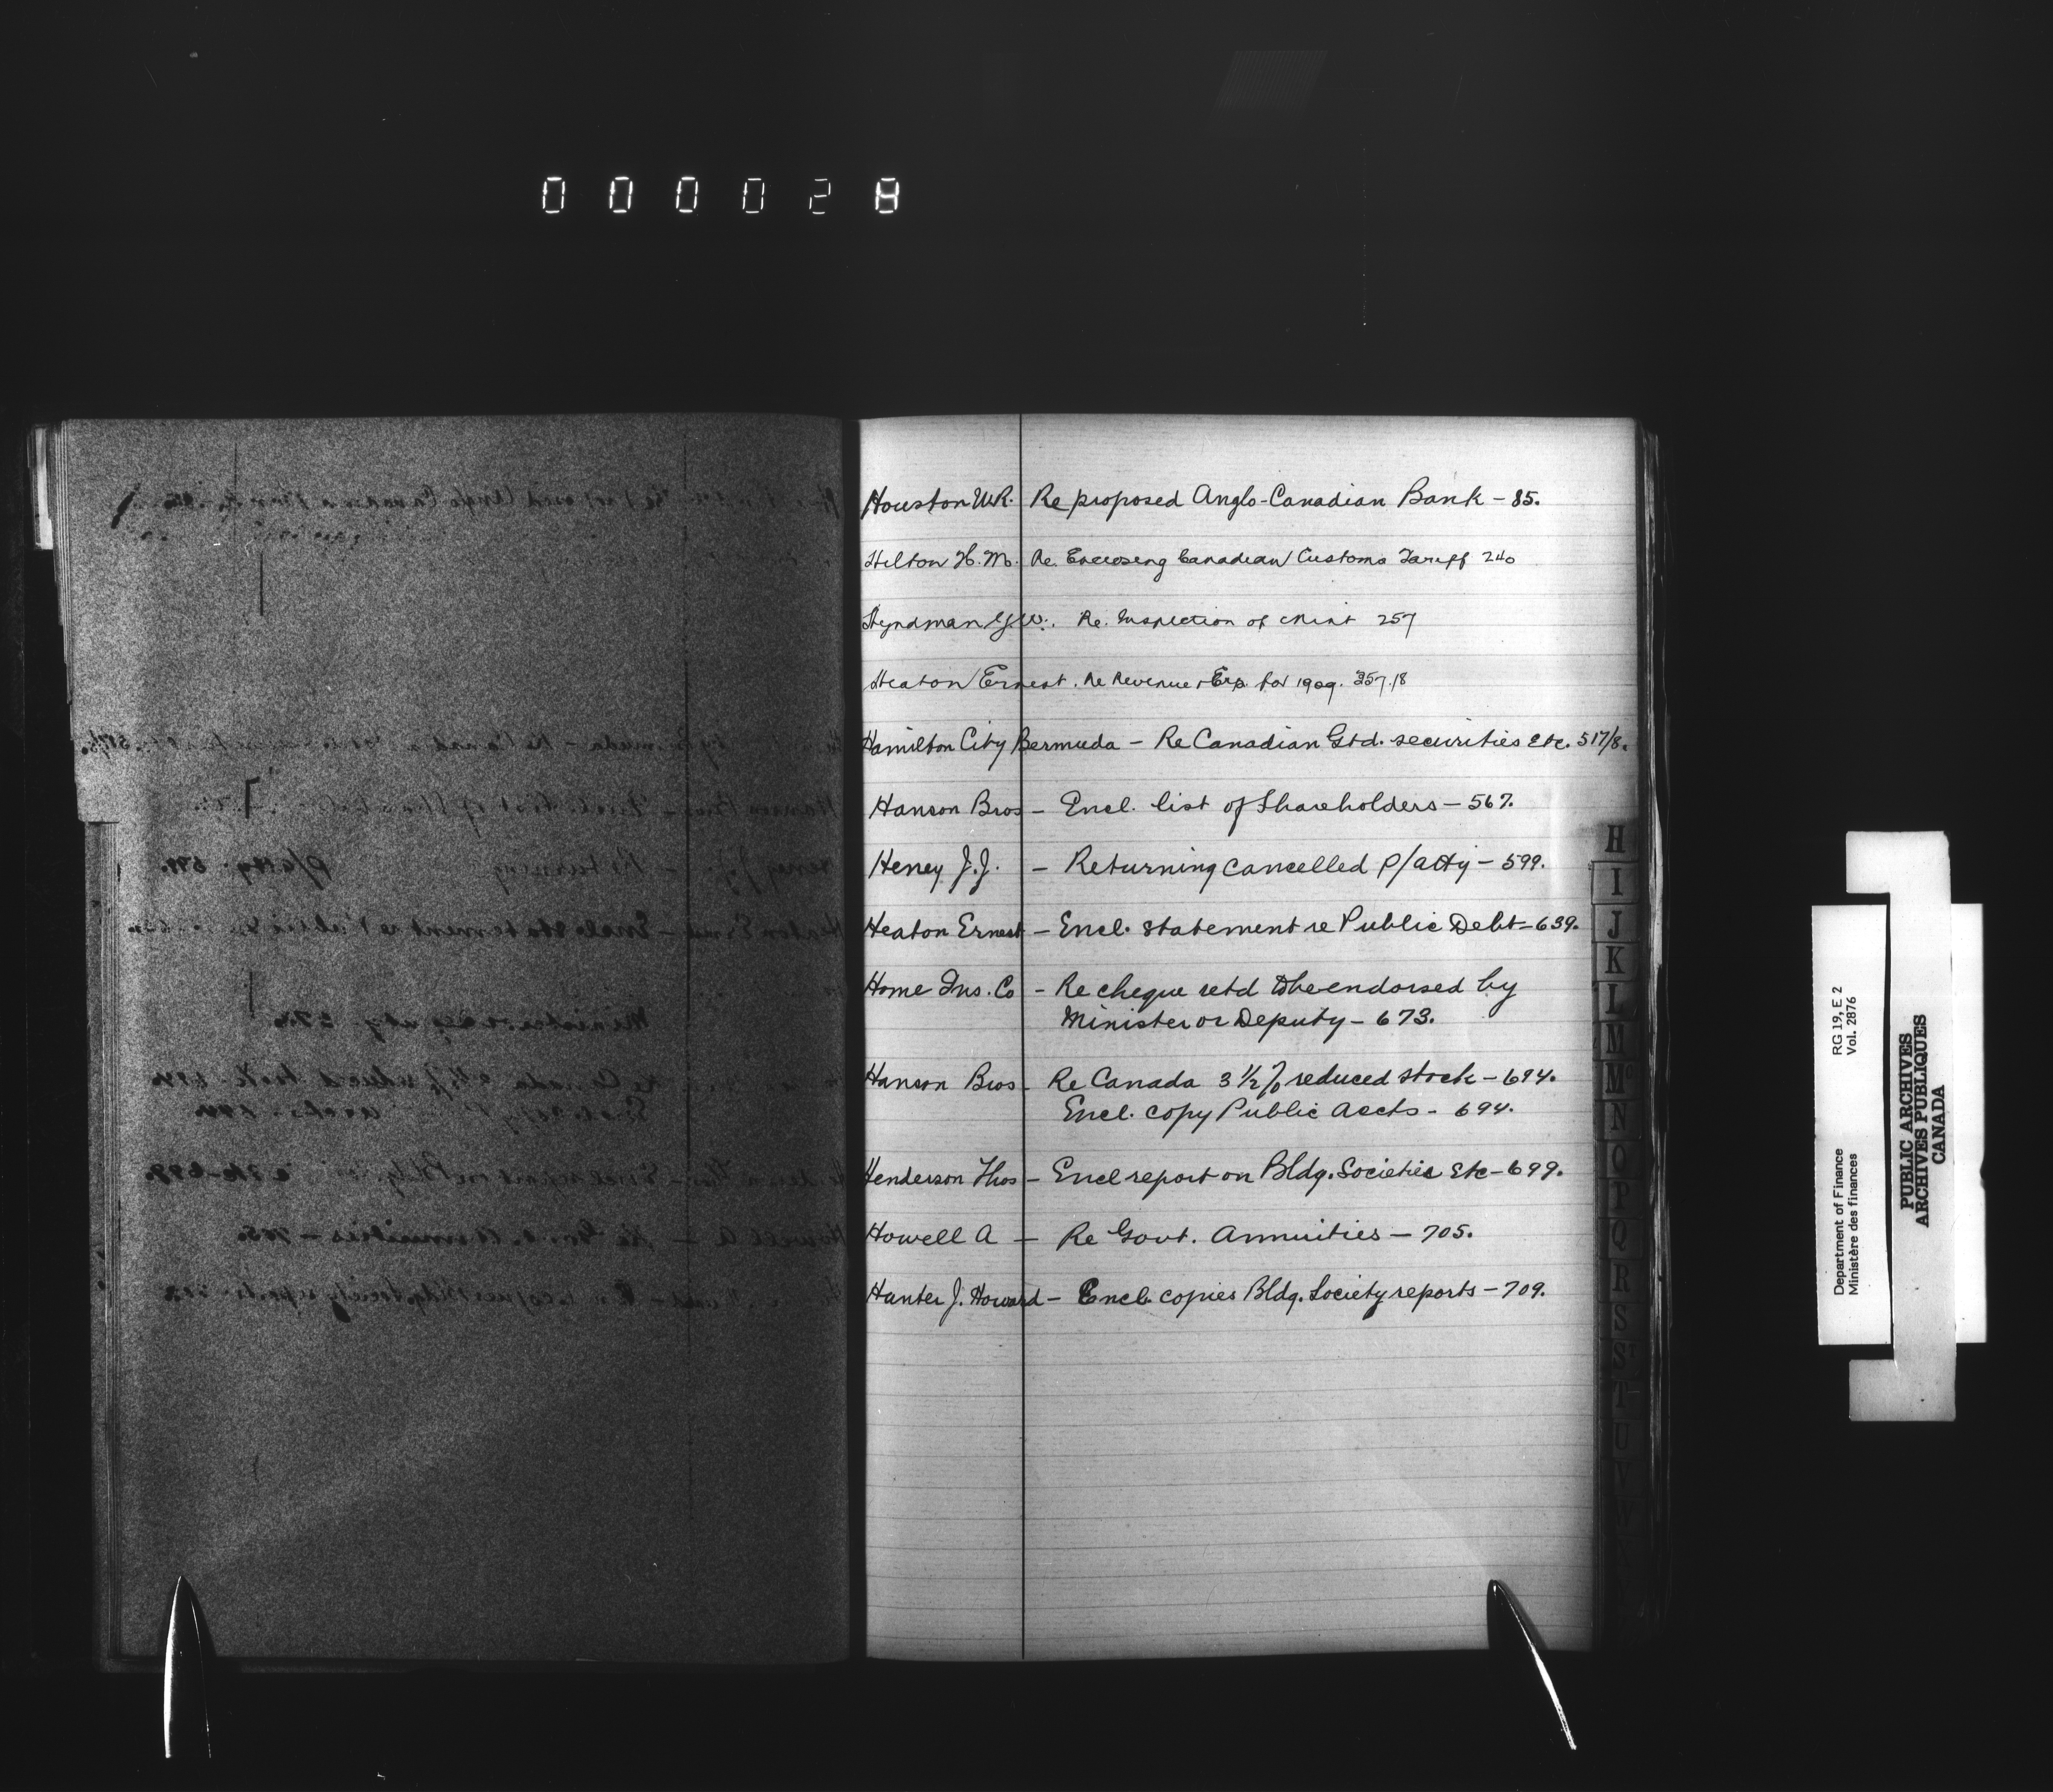 000028
Houston W.R. Re proposed Anglo-Canadian Bank - 85.
Hilton H.M. Re. Enclosing Canadian Customs Tariff 240
Hyndman Re. Inspection of Mint 257
Heaton Ernest. Re Revenue + Exp. for 1909. 357.18
Hamilton City Bermuda - Re Canadian Gtd. securities Etc. 517/8.
Hanson Bros - Encl. list of Shareholders - 567.
Heney J.J. - Returning cancelled P/atty - 599.
Heaton Ernest - Encl. statement re Public Debt - 639.
Home Ins. Co - Re cheque retd to be endorsed by
Minister or Deputy - 673.
Hanson Bros - Re Canada 3 1/2 % reduced stock - 694.
Encl. copy Public Accts - 694.
Henderson Thos - Encl report on Bldg. Societies Etc - 699.
Howell A - Re Govt. Annuities - 705.
Hunter J. Howard - Encl. copies Bldg. Society reports - 709.
H
I
J
K
L
M
Mc
N
O
P
Q
R
S
St
T
U
V
RG 19, E 2
Vol. 2876
Department of Finance
Ministère des finances
PUBLIC ARCHIVES
ARCHIVES PUBLIQUES
CANADA